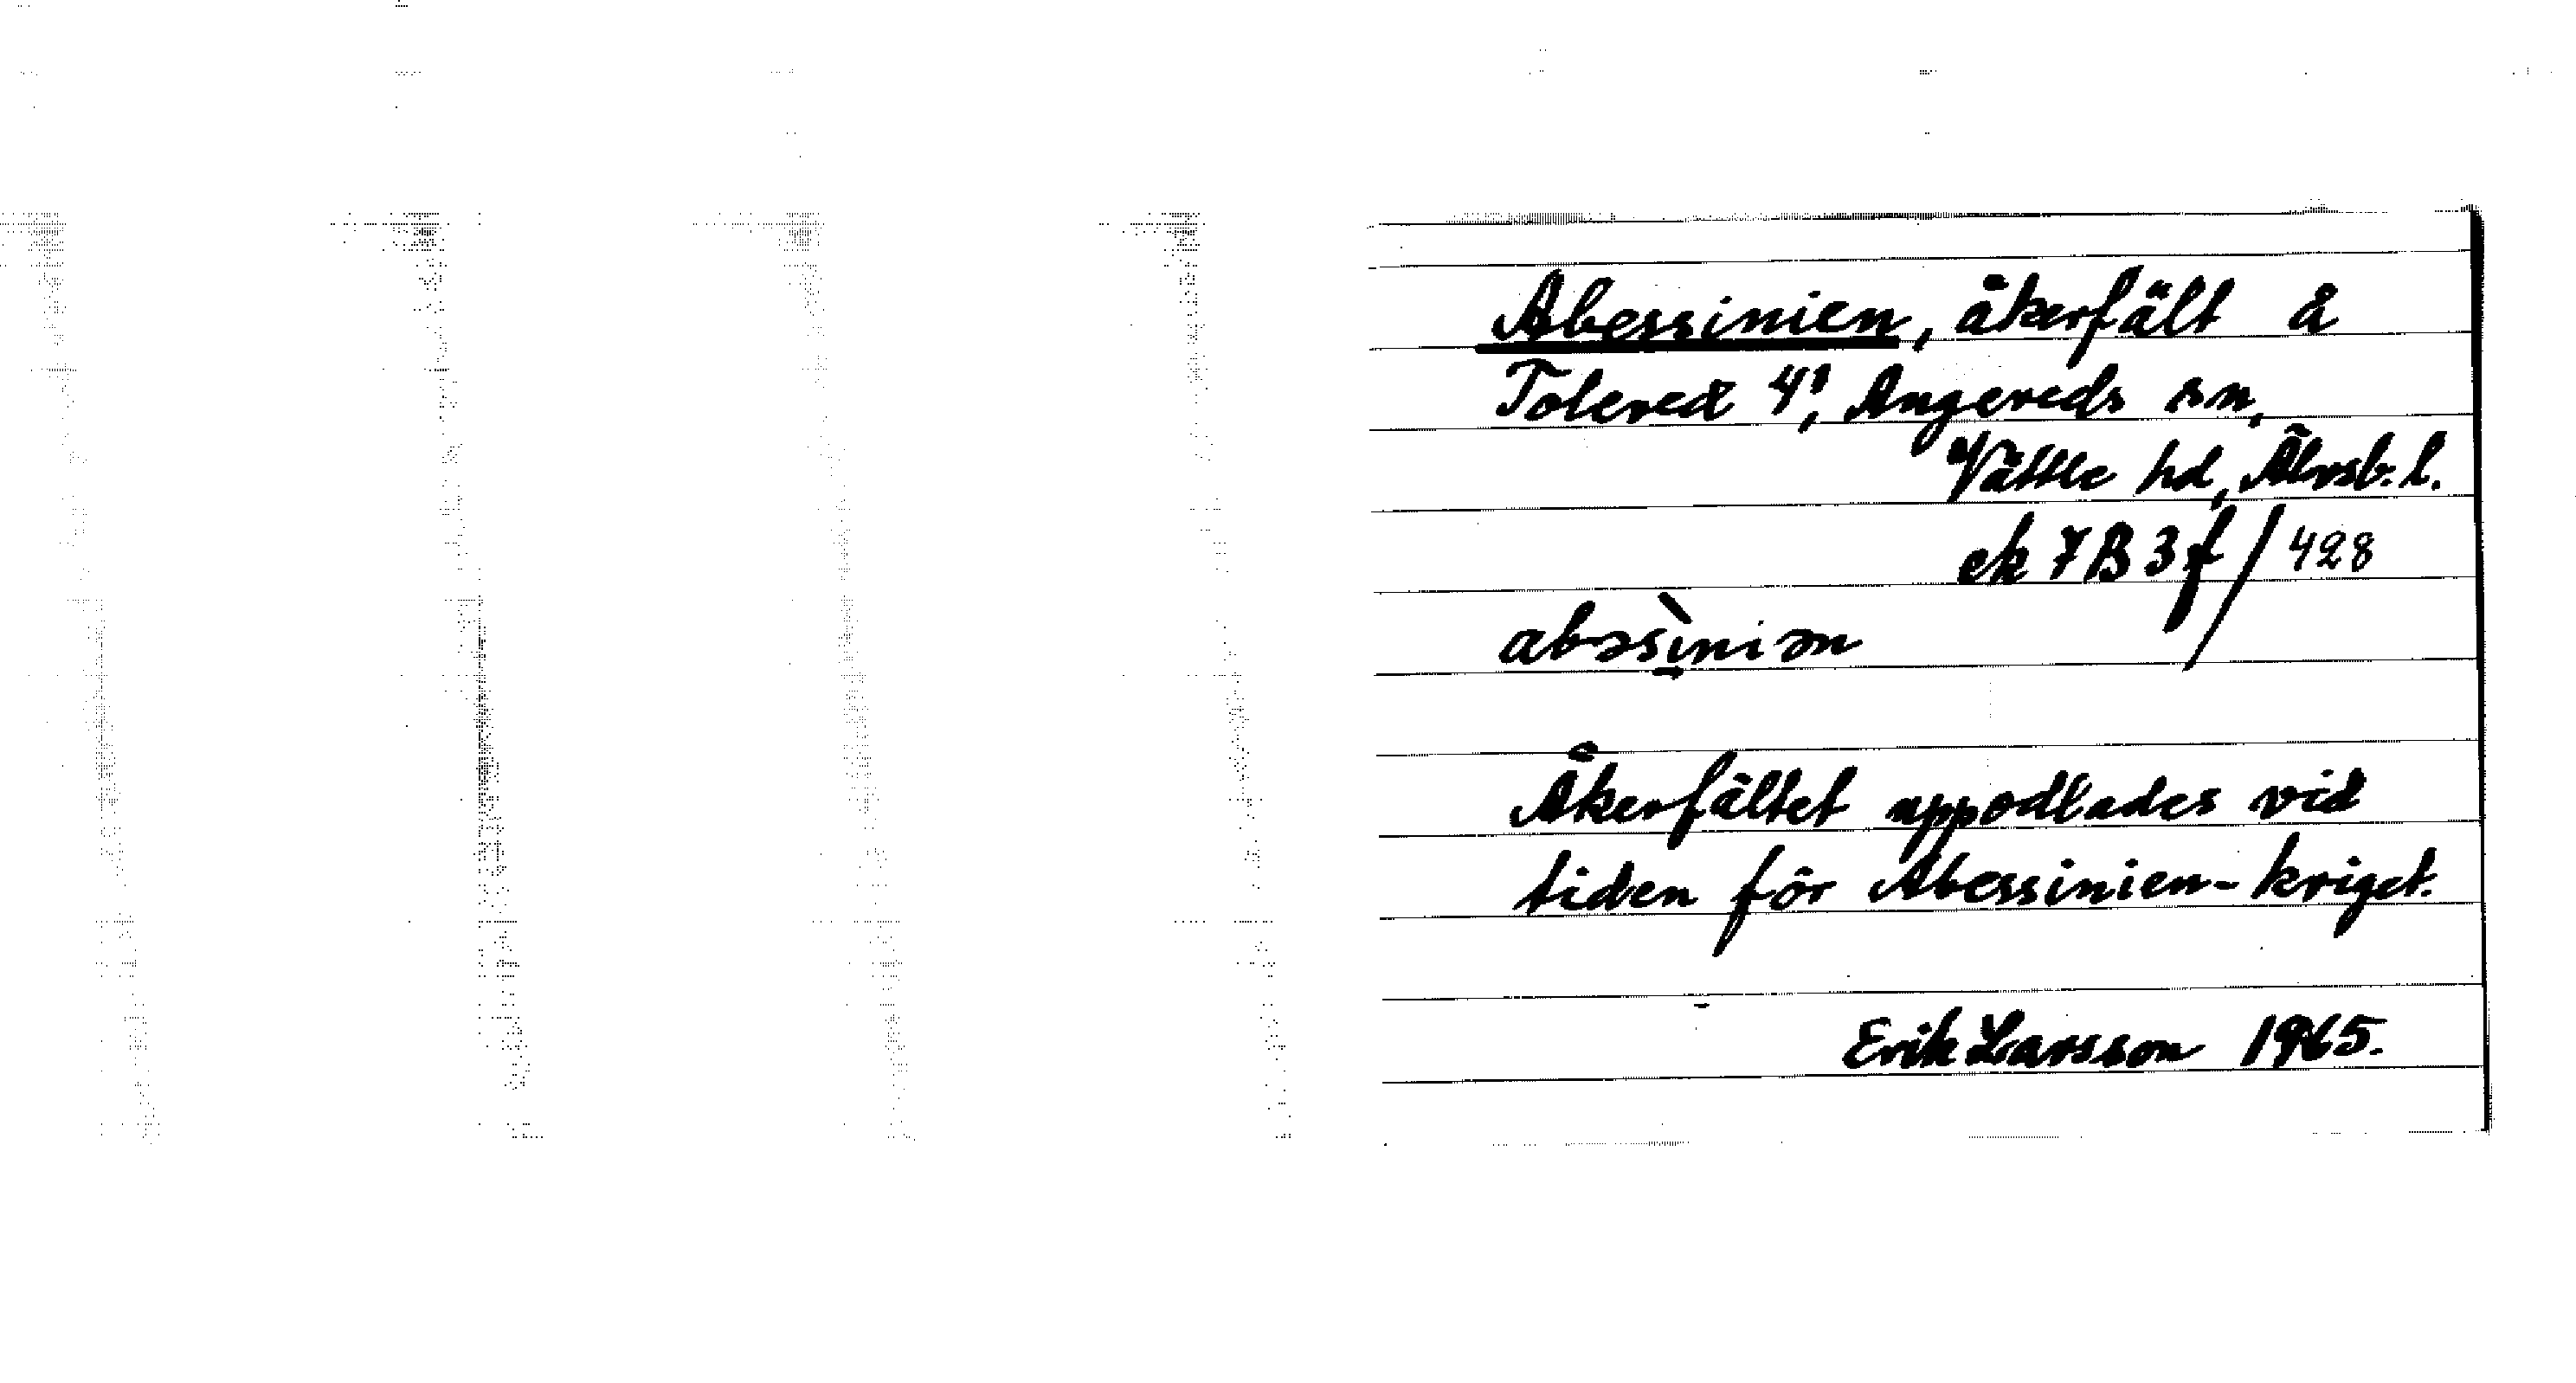 Abessinien, åkerfält å
Tolered 4¹, Angereds sn,
Vättle hd, Älvsb. l.
ek 7B 3f / 428
abəsìniən
Åkerfältet uppodlades vid
tiden för Abessinien-kriget.
Erik Larsson 1965.